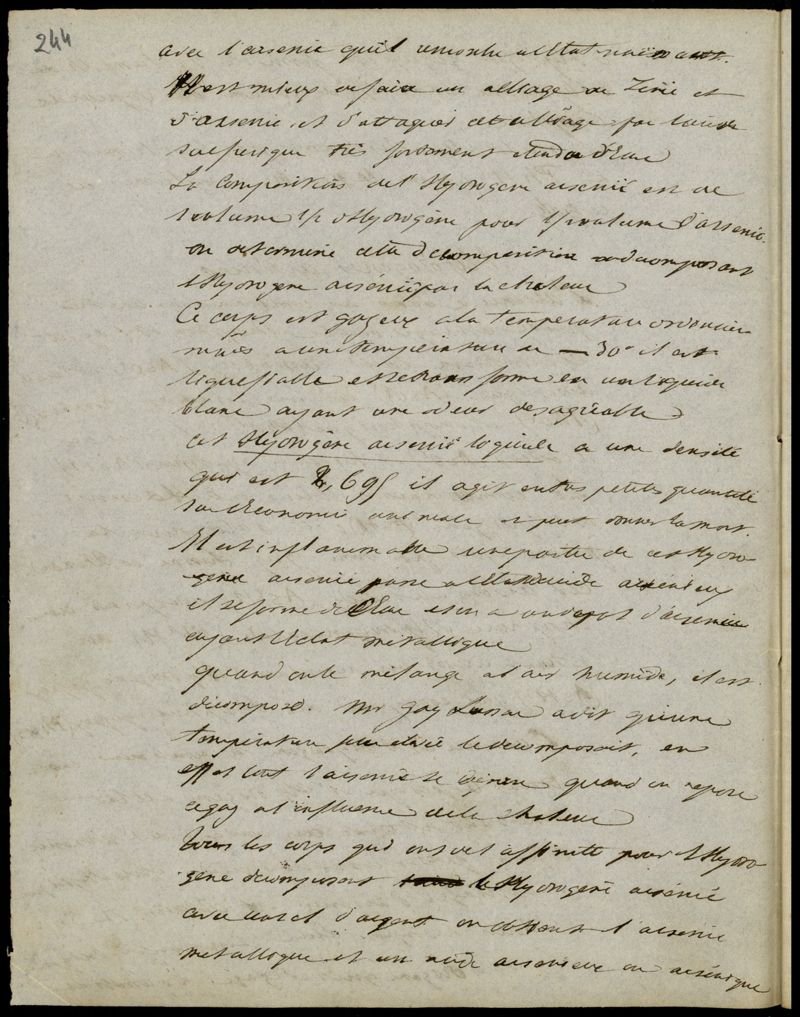 244
avec l'arsenic qu'il rencontre a l'état naissant.
Il est mieux de faire un alliage de Zinc et
d'arsenic, et d'attaquer cet alliage par l'acide
sulfurique très fortement étendu d'Eau
La Composition de l'Hydrogène arsenié est de
1 volume 1/2 d'Hydrogène pour 1/2 volume d'arsenic.
on determine cette decomposition en decomposant
l'Hydrogène arsénié par la chaleur
Ce corps est gazeux a la température ordinaire
mais a une température de — 30° il est
liquefiable et se transforme en un liquide
blanc ayant une odeur désagréable
cet Hydrogène arsenié liquide a une densité
qui est 2,695 il agit en très petites quantité
sur l'économie animale et peut donner la mort.
Il est inflammable une partie de cet Hydro-
gène arsenié passe a l'état d'acide arsenieux
il se forme de l'Eau et on a un depot d'arsenic
ayant l'éclat métallique
quand on le mélange a l'air humide, il est
décomposé. Mr Gay Lussac a dit qu'une
température peu élevée le decomposait, en
effet tout l'arsenic se quand on expose
ce gaz a l'influence de la chaleur
Tous les corps qui ont de l'affinité pour l'Hydro-
gène decomposent le Hydrogène arsénié
avec un sel d'argent on obtient l'arsenic
metallique et un acide arsenieux ou arsénique